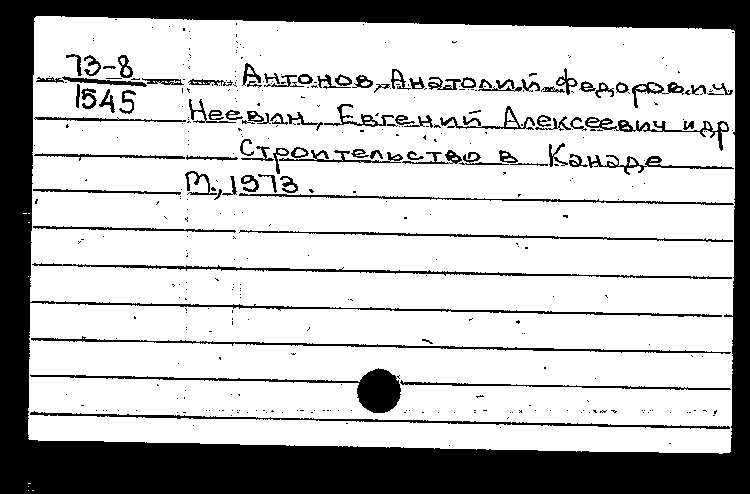 73-8
1545
Антонов, Анатолий Федорович
Неевин, Евгений Алексеевич и др.
Строительство в Канаде
М., 1973.